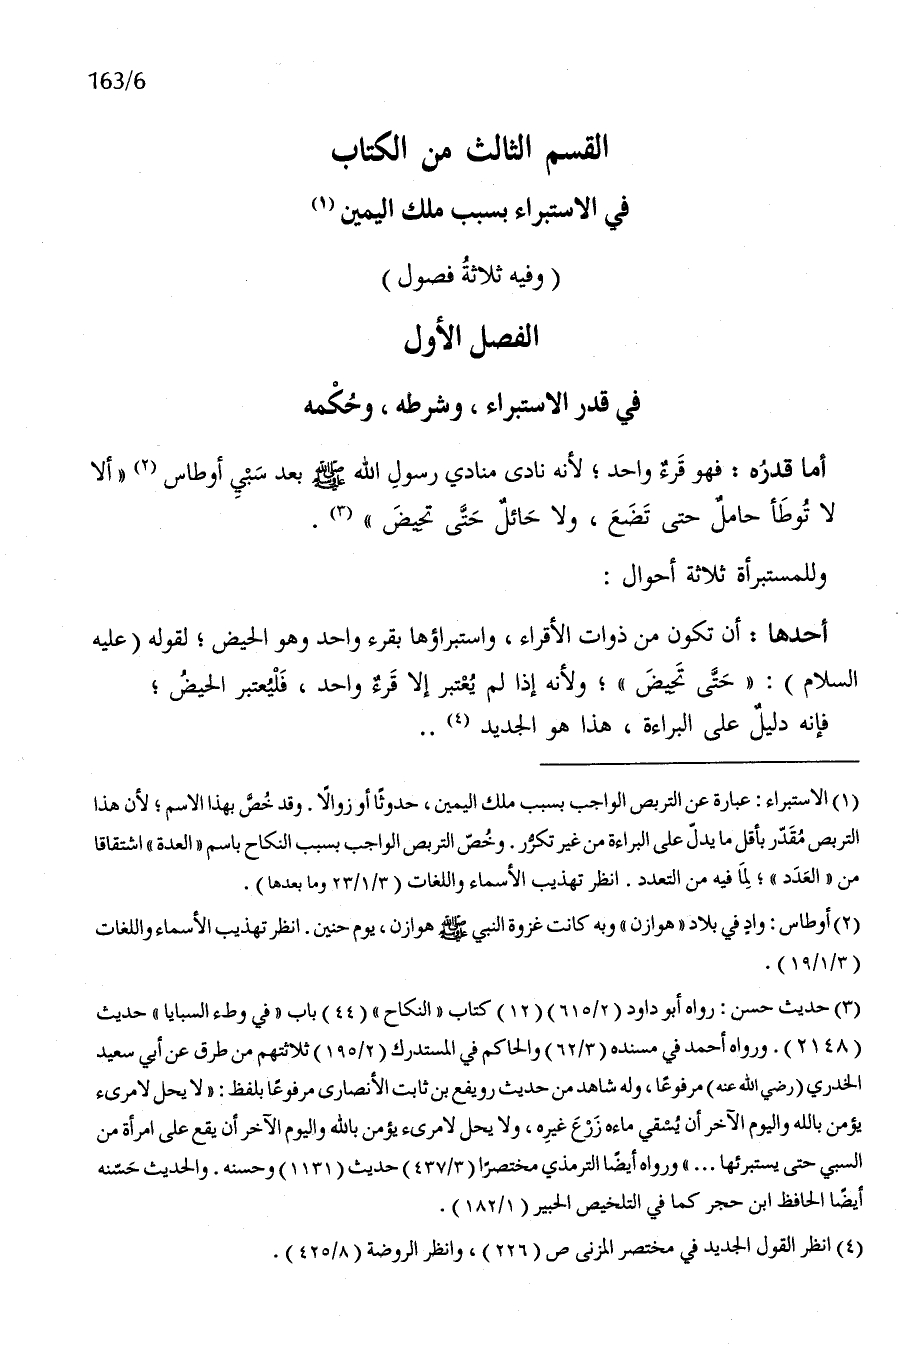 163/6
القسم الثالث من الكتاب
في الاستبراء بسبب ملك اليمين (١)
( وفيه ثلاثةُ فصول )
الفصل الأول
في قدر الاستبراء ، وشرطه ، وحُكْمه
أما قدرُه : فهو قَرءٌ واحد ؛ لأنه نادى منادي رسولِ الله ﷺ بعد سَبْيِ أوطاس (٢) « ألا
لا تُوطَأ حاملٌ حتى تَضَعَ ، ولا حَائلٌ حَتَّى تحيضَ » (٣) .
وللمستبرأة ثلاثة أحوال :
أحدها : أن تكون من ذوات الأقراء ، واستبراؤها بقرء واحد وهو الحيض ؛ لقوله ( عليه
السلام ) : « حَتَّى تَحيضَ » ؛ ولأنه إذا لم يُعْتبر إلا قَرءٌ واحد ، فَلْيُعتبر الحيضُ ؛
فإنه دليلٌ على البراءة ، هذا هو الجديد (٤) ..
(١) الاستبراء : عبارة عن التربص الواجب بسبب ملك اليمين ، حدوثًا أو زوالًا . وقد خُصَّ بهذا الاسم ؛ لأن هذا
التربص مُقَدّر بأقل ما يدلّ على البراءة من غير تكرُّر . وخُصّ التربص الواجب بسبب النكاح باسم « العدة » اشتقاقا
من « العَدَد » ؛ لِمَا فيه من التعدد . انظر تهذيب الأسماء واللغات ( ٢٣/١/٣ وما بعدها ) .
(٢) أوطاس : وادٍ في بلاد « هوازن » وبه كانت غزوة النبي ﷺ هوازن ، يوم حنين . انظر تهذيب الأسماء واللغات
( ١٩/١/٣ ) .
(٣) حديث حسن : رواه أبو داود ( ٦١٥/٢ ) ( ١٢ ) كتاب « النكاح » ( ٤٤ ) باب « في وطء السبايا » حديث
( ٢١٤٨ ) . ورواه أحمد في مسنده ( ٦٢/٣ ) والحاكم في المستدرك ( ١٩٥/٢ ) ثلاثتهم من طرق عن أبي سعيد
الخدري ( رضي الله عنه ) مرفوعًا ، وله شاهد من حديث رويفع بن ثابت الأنصارى مرفوعًا بلفظ : « لا يحل لامرىء
يؤمن بالله واليوم الآخر أن يُسْقي ماءه زَرْعَ غيرِه ، ولا يحل لامرىء يؤمن بالله واليوم الآخر أن يقع على امرأة من
السبي حتى يستبرئها ... » ورواه أيضًا الترمذي مختصرًا ( ٤٣٧/٣ ) حديث ( ١١٣١ ) وحسنه . والحديث حَسّنه
أيضًا الحافظ ابن حجر كما في التلخيص الحبير ( ١٨٢/١ ) .
(٤) انظر القول الجديد في مختصر المزنى ص ( ٢٢٦ ) ، وانظر الروضة ( ٤٢٥/٨ ) .